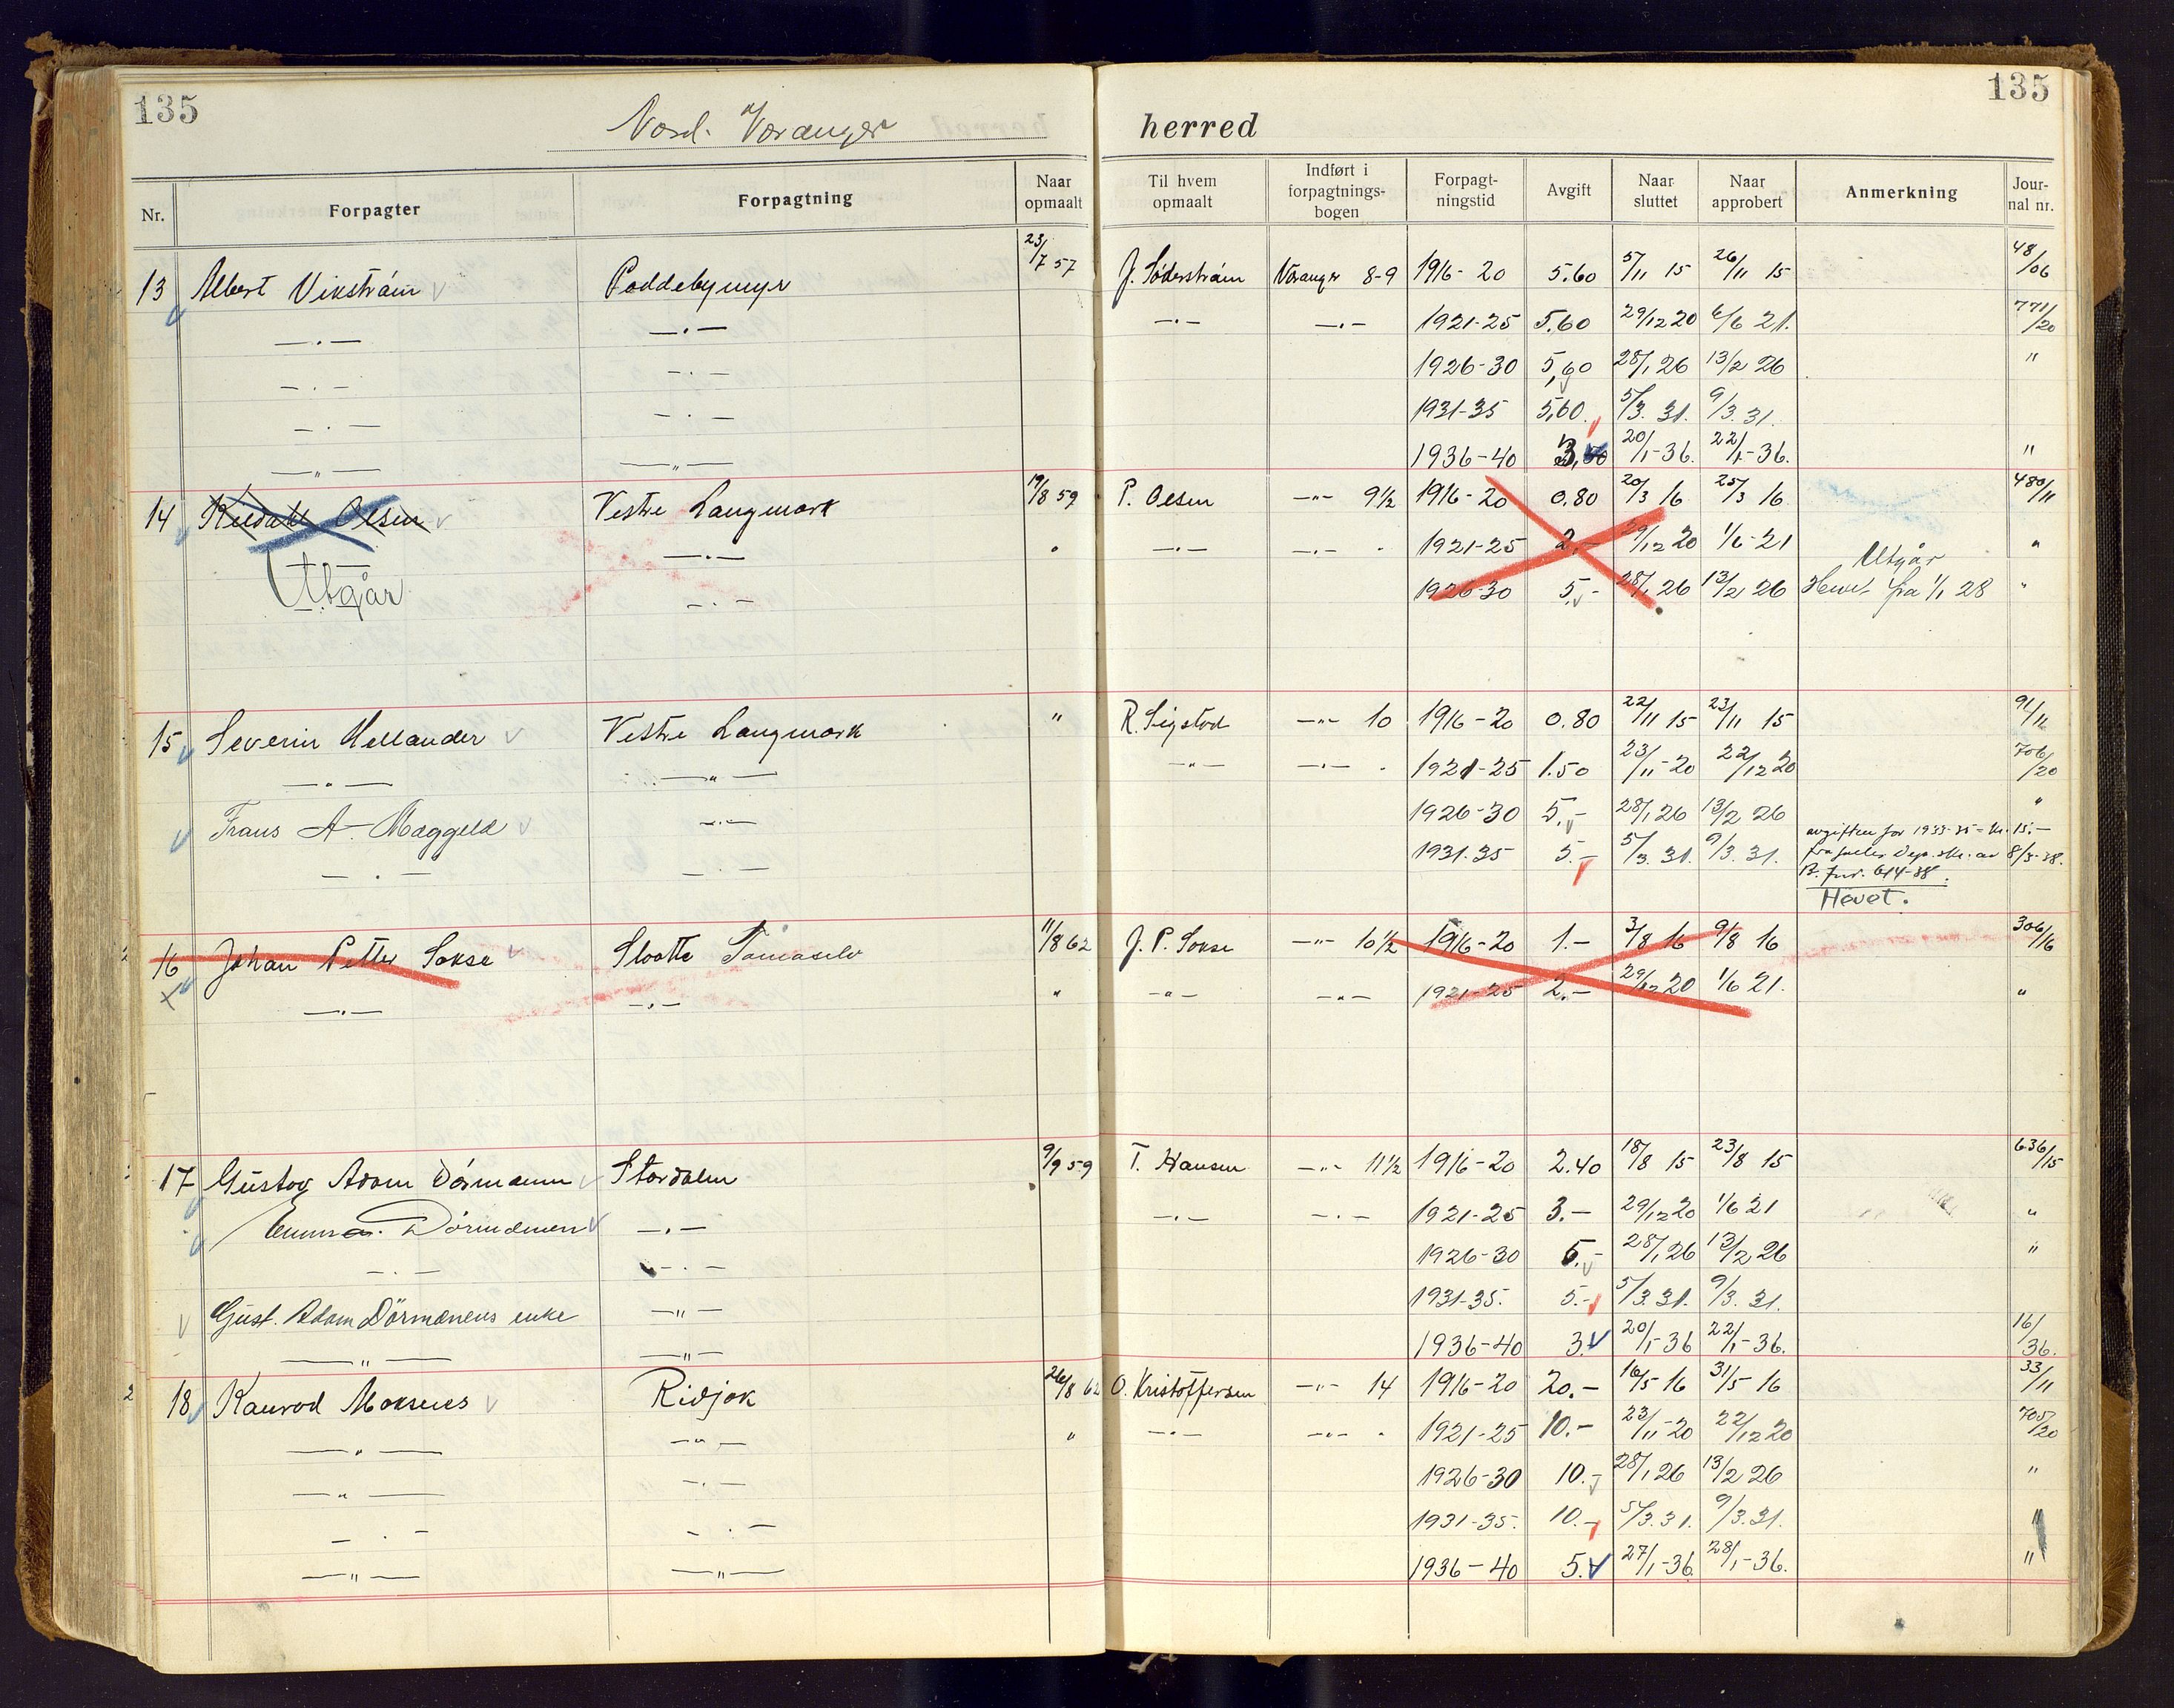 135
Nord-Varanger
herred
135
Nr. Forpagter Forpagtning Naar opmaalt Til hvem opmaalt Indført i forpagtnings-bogen Forpagt-ningstid Avgift Naar sluttet Naar approbert Anmerkning Jour-nal nr.
13 Albert Vikstrám Paddebymyr 23/7 57 J. Söderstrám Varanger 8-9 1916-20 5.60 5/11 15 26/11 15 48/06
—·— —·— —·— —·— 1921-25 5.60 29/12 20 6/6 21. 771/20
—·— —·— 1926-30 5,60 28/1 26 13/2 26 "
—·— —·— 1931-35 5,60 5/3. 31. 9/3. 31.
—"— —"— 1936-40 20/1-36. 22/1-36. "
14 Olsen Vestre Langmark 19/8 59 P. Olsen —"— 9½ 1916-20 0.80 20/3 16 25/3 16 480/11
—·— —·— —·— 1921-25 2.— 29/12 20 1/6-21 "
Utgår —·— 1926-30 5.- 28/1 26 13/2 26 Utgår Hevet fra 1/1 28 "
15 Severin Hellander Vestre Langmark " R. Sigstad —"— 10 1916-20 0.80 22/11 15 23/11 15 91/11
—"— —"— —"— —·— 1921-25 1.50 23/11-20 22/12 20 706/20
Frans A. Maggeld —·— 1926-30 5.- 28/1 26 13/2 26 "
—·— —·— 1931-35 5.- 5/3. 31. 9/3. 31. avgiften for 1933-35 = kr. 15.—
8/3-38.
614-38.
Hevet.
16 Johan Petter Sakse Slaatte 11/8 62 J. P. Sakse —"— 10½ 1916-20 1.— 3/8 16 9/8 16 306/16
—·— —·— " —"— —"— 1921-25 2.— 29/12 20 1/6 21. "
17 Gustav Adam Dörmænen Stordalen 9/9 59 T. Hansen —"— 11½ 1916-20 2.40 18/8 15 23/8 15 636/15
Emma Dörmænen —·— —·— —·— 1921-25 3.— 29/12 20 1/6 21 "
—·— —·— 1926-30 5.- 28/1 26 13/2 26 "
Gust. Adam Dörmænens enke —"— 1931-35. 5.- 5/3. 31. 9/3. 31.
—"— —"— 1936-40 3. 20/1-36 22/1-36. 16/36.
18 Konrad Moksnes Ridjok 26/8 62 O. Kristoffersen —"— 14 1916-20 20.— 16/5 16 31/5 16 33/11
—"— —"— " —·— —"— 1921-25 10.— 23/11-20 22/12 20 705/20
—"— —·— 1926-30 10.- 28/1 26 13/2 26 "
—·— —·— 1931-35. 10.- 5/3. 31. 9/3. 31. "
—"— —"— 1936-40 5. 27/1-36. 28/1-36. "